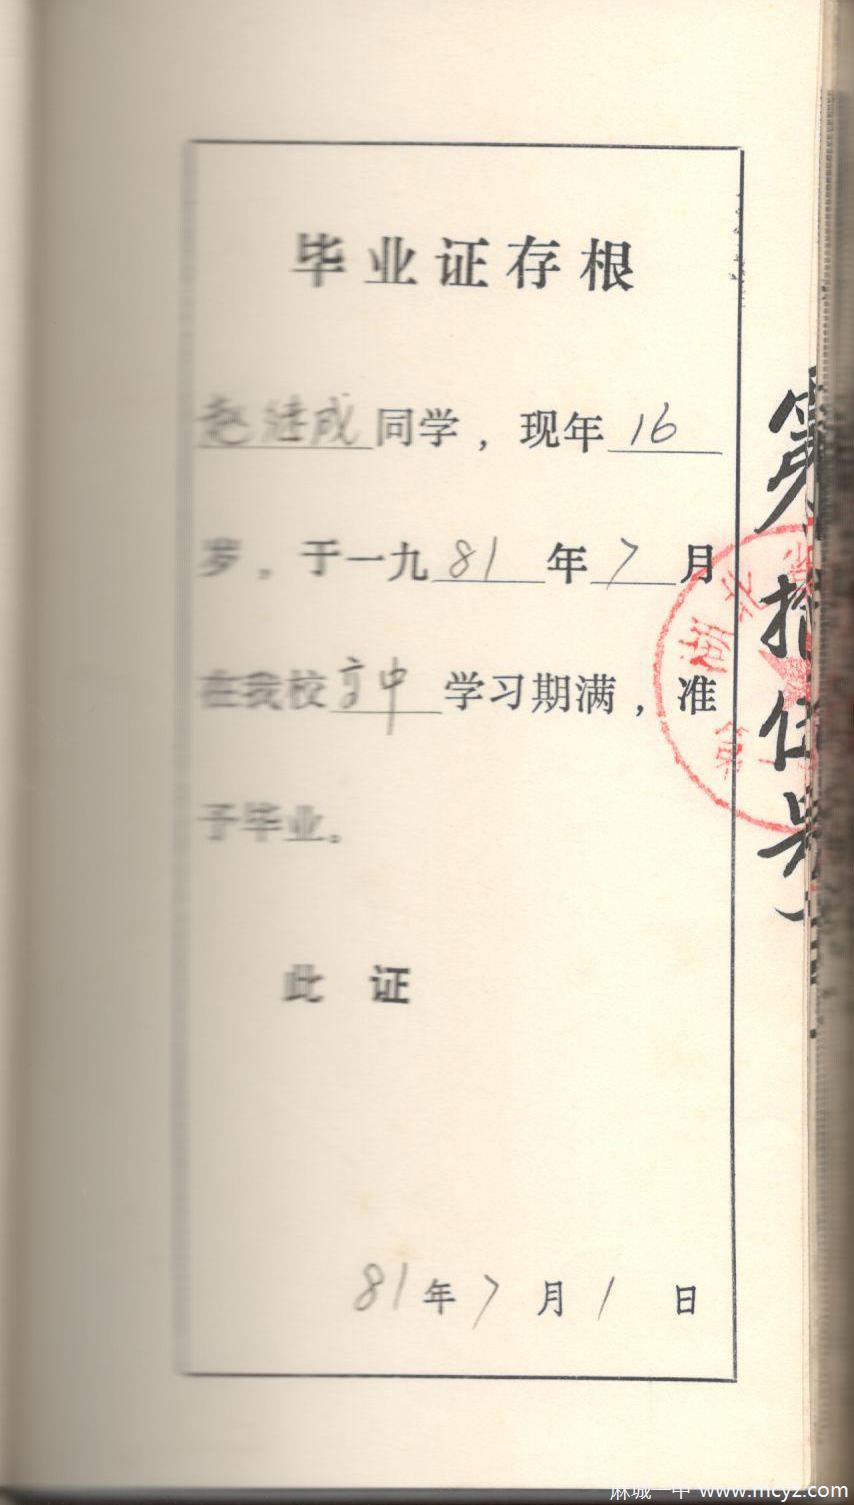 毕业证存根
赵继成同学，现年16
岁，于一九81年7月
在我校高中学习期满，准
予毕业。
此 证
81年7月1日
第拾伍号
湖北省
第一
麻城一中 www.mcyz.com